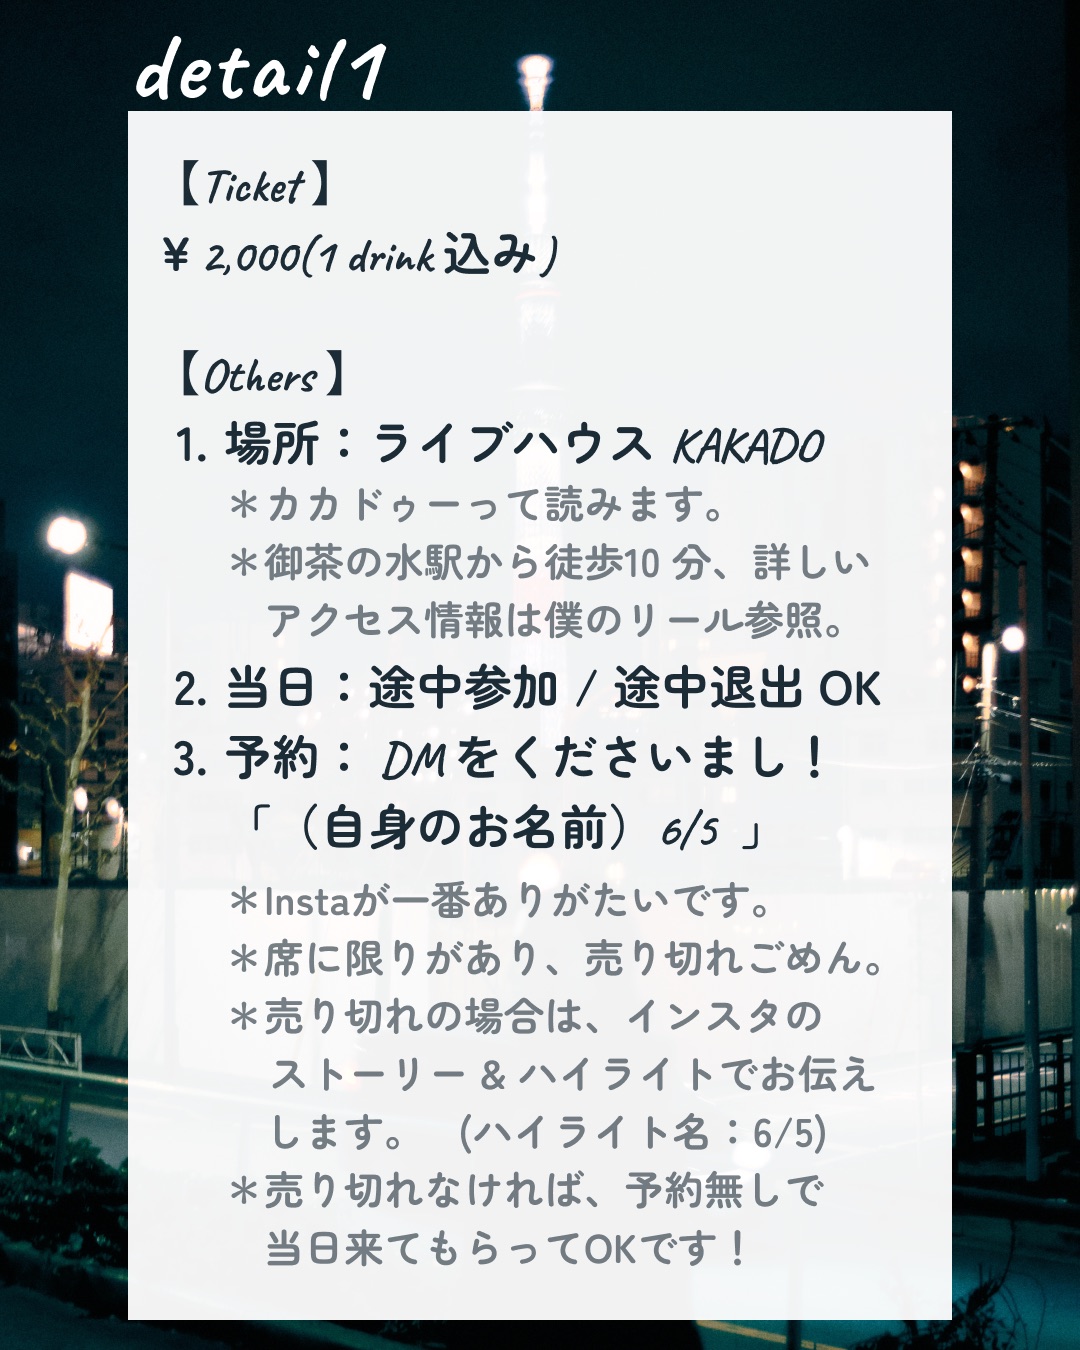 detail1
【Ticket】
￥2,000(1 drink込み)
【Others】
1. 場所：ライブハウス KAKADO
＊カカドゥーって読みます。
＊御茶の水駅から徒歩10 分、詳しい
アクセス情報は僕のリール参照。
2. 当日：途中参加 / 途中退出 OK
3. 予約： DMをくださいまし！
「（自身のお名前） 6/5 」
＊Instaが一番ありがたいです。
＊席に限りがあり、売り切れごめん。
＊売り切れの場合は、インスタの
ストーリー & ハイライトでお伝え
します。 (ハイライト名：6/5)
＊売り切れなければ、予約無しで
当日来てもらってOKです！